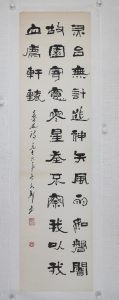 灵台無計逃神矢風雨如磐闇
故園寄意寒星荃不察我以我
血薦軒轅
魯迅詩